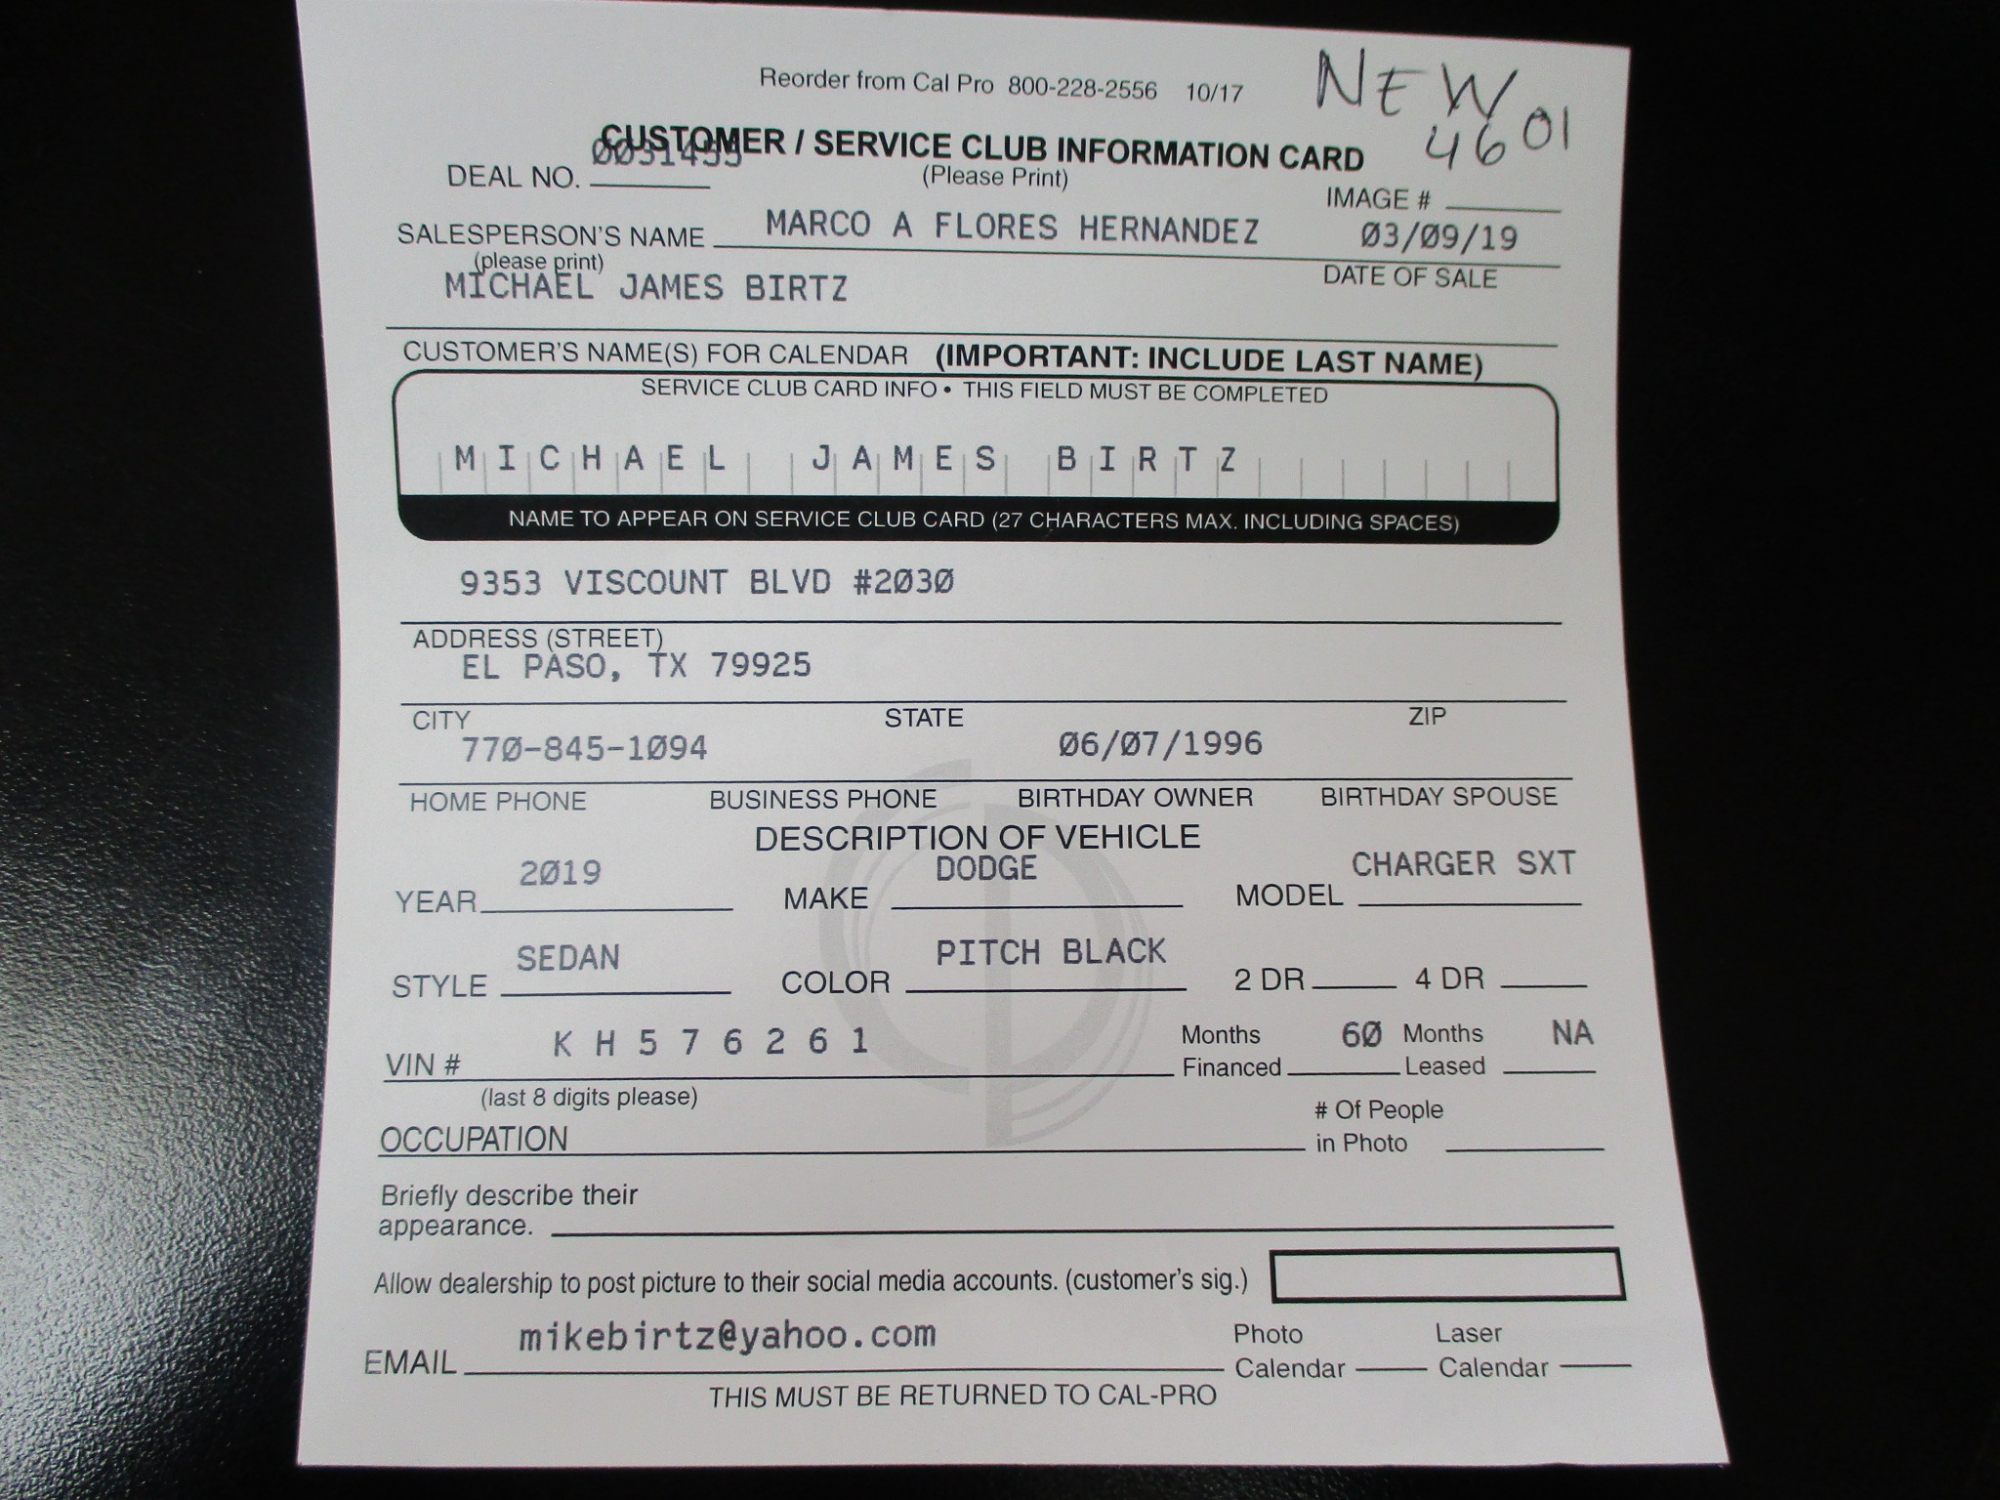 Reorder from Cal Pro 800-228-2556 10/17
NEW
4601
CUSTOMER / SERVICE CLUB INFORMATION CARD
(Please Print)
DEAL NO. 0031455
IMAGE #
SALESPERSON'S NAME MARCO A FLORES HERNANDEZ 03/09/19
(please print) DATE OF SALE
MICHAEL JAMES BIRTZ
CUSTOMER'S NAME(S) FOR CALENDAR (IMPORTANT: INCLUDE LAST NAME)
SERVICE CLUB CARD INFO • THIS FIELD MUST BE COMPLETED
MICHAEL JAMES BIRTZ
NAME TO APPEAR ON SERVICE CLUB CARD (27 CHARACTERS MAX. INCLUDING SPACES)
9353 VISCOUNT BLVD #2030
ADDRESS (STREET)
EL PASO, TX 79925
CITY STATE ZIP
770-845-1094 06/07/1996
HOME PHONE BUSINESS PHONE BIRTHDAY OWNER BIRTHDAY SPOUSE
DESCRIPTION OF VEHICLE
YEAR 2019 MAKE DODGE MODEL CHARGER SXT
STYLE SEDAN COLOR PITCH BLACK 2 DR 4 DR
VIN # KH576261 Months Financed 60 Months Leased NA
(last 8 digits please)
OCCUPATION # Of People in Photo
Briefly describe their
appearance.
Allow dealership to post picture to their social media accounts. (customer's sig.)
EMAIL mikebirtz@yahoo.com Photo Calendar Laser Calendar
THIS MUST BE RETURNED TO CAL-PRO